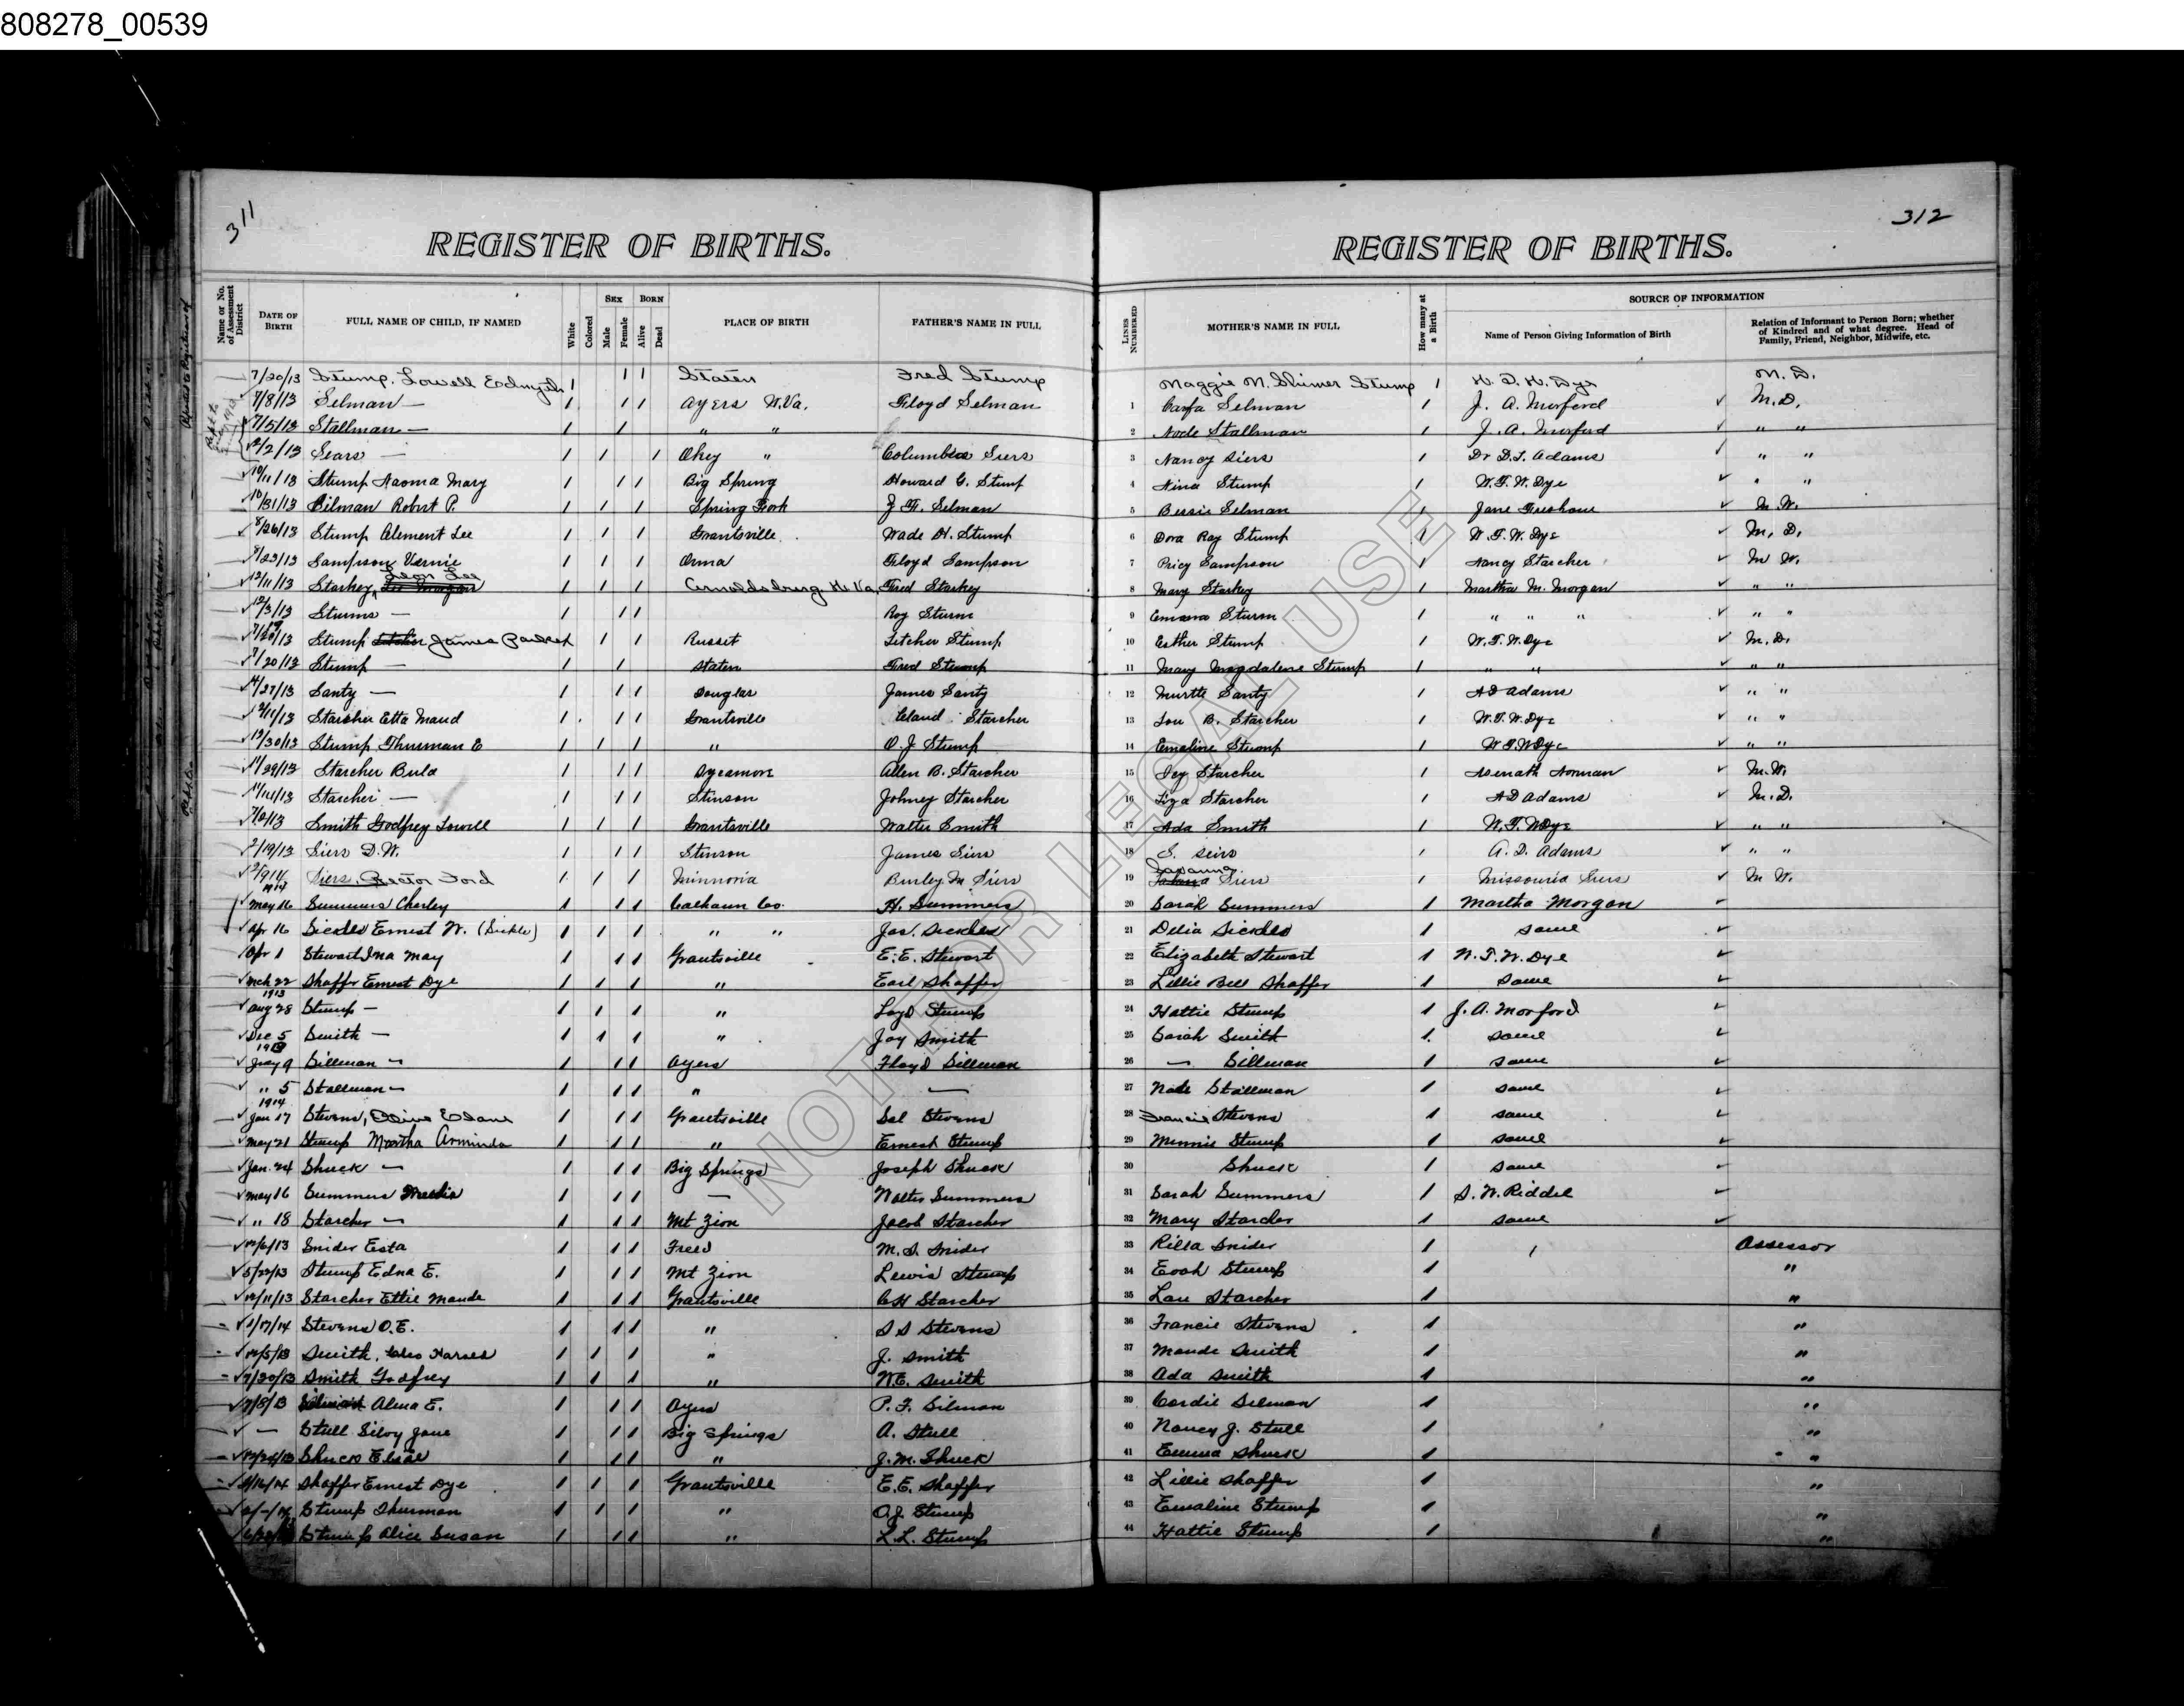 808278_00539
311
REGISTER OF BIRTHS.
Name or No. of Assessment District
DATE OF BIRTH
FULL NAME OF CHILD, IF NAMED
White
Colored
SEX
Male
Female
BORN
Alive
Dead
PLACE OF BIRTH
FATHER'S NAME IN FULL
7/20/13 Stump, Lowell 1 1 1 Staten Fred Stump
7/8/13 Selman — 1 1 1 Ayers W.Va. Floyd Selman
7/5/13 Stallman — 1 1 " "
12/2/13 Sears — 1 1 1 Okey " Columbus Siers
10/11/13 Stump Naoma Mary 1 1 1 Big Spring Howard G. Stump
10/31/13 Silman Robert P. 1 1 1 Spring Fork J. F. Selman
8/26/13 Stump Clement Lee 1 1 1 Grantsville Wade H. Stump
9/23/13 Sampson Vernie 1 1 1 Orma Floyd Sampson
12/11/13 Starkey, Leon Lee 1 1 1 Arnoldsburg W.Va. Fred Starkey
12/3/13 Sturms — 1 1 1 Roy Sturm
Stump James 1 1 Russet Letcher Stump
7/20/13 Stump — 1 1 Staten Fred Stump
4/27/13 Santy — 1 1 1 Douglas James Santy
12/11/13 Starcher Etta Maud 1 1 1 Grantsville Cland Starcher
12/30/13 Stump Thurman E 1 1 1 " O. J. Stump
11/29/13 Starcher Bula 1 1 1 Sycamore Allen B. Starcher
11/14/13 Starcher — 1 1 1 Stinson Johney Starcher
Smith Godfrey Lowell 1 1 1 Grantsville Walter Smith
2/19/13 Siers D.W. 1 1 1 Stinson James Siers
Siers, Rector Ford 1 1 1 Minnora Burley M. Siers
1914
May 16 Summers Charley 1 1 1 Calhoun Co. H. Summers
Apr 16 Sickles Ernest W. (Sickle) 1 1 1 " " Jas. Sickles
Apr 1 Stewart Ina May 1 1 1 Grantsville E. E. Stewart
Mch 22 Shaffer Ernest Dye 1 1 1 " Earl Shaffer
1913
Aug 28 Stump — 1 1 1 " Loyd Stump
Dec 5 Smith — 1 1 1 " Jay Smith
1913
9 Sillman — 1 1 1 Ayers Floyd Sillman
" 5 Stallman — 1 1 1 " —
1914
Jan 17 Stevens, 1 1 1 Grantsville Sel Stevens
May 21 Stump Martha Arminda 1 1 1 " Ernest Stump
Jan. 24 Shuck — 1 1 1 Big Springs Joseph Shuck
May 16 Summers 1 1 1 — Walter Summers
" 18 Starcher — 1 1 1 Mt Zion Jacob Starcher
12/6/13 Snider Esta 1 1 1 Freed M. S. Snider
5/22/13 Stump Edna E. 1 1 1 Mt Zion Lewis Stump
12/11/13 Starcher Ettie Maude 1 1 1 Grantsville C H Starcher
1/17/14 Stevens O.E. 1 1 1 " S S Stevens
12/5/13 Smith, Cleo 1 1 1 " J. Smith
7/20/13 Smith Godfrey 1 1 1 " W.E. Smith
7/8/13 Alma E. 1 1 1 Ayers P. F. Silman
— Stull Silvy Jane 1 1 1 Big Springs A. Stull
Shuck Elsie 1 1 1 " J. M. Shuck
Shaffer Ernest Dye 1 1 1 Grantsville E.E. Shaffer
Stump Thurman 1 1 1 " O.J. Stump
Stump Alice Susan 1 1 1 " L.L. Stump
312
REGISTER OF BIRTHS.
LINES NUMBERED
MOTHER'S NAME IN FULL
How many at a Birth
SOURCE OF INFORMATION
Name of Person Giving Information of Birth
Relation of Informant to Person Born; whether of Kindred and of what degree. Head of Family, Friend, Neighbor, Midwife, etc.
Maggie M. Stump 1 Dye M. D.
1 Selman 1 J. A. Morford M. D.
2 Node Stallman 1 J. A. Morford " "
3 Nancy Siers 1 Dr D.L. Adams " "
4 Nina Stump 1 W. T. W. Dye " "
5 Bessie Selman 1 Jane M. W.
6 Dora Ray Stump 1 W. T. W. Dye M. D.
7 Pricy Sampson 1 Nancy Starcher M W.
8 Mary Starkey 1 Martha M. Morgan " "
9 Emma Sturm 1 " " " " "
10 Esther Stump 1 W. T. W. Dye M. D.
11 Mary Magdalene Stump 1 " " " "
12 Santy 1 A D Adams " "
13 Lou B. Starcher 1 W. T. W. Dye " "
14 Emaline Stump 1 W T. W Dye " "
15 Icy Starcher 1 Asenath Norman M. W.
16 Liza Starcher 1 A D Adams M. D.
17 Ada Smith 1 W. T. W Dye " "
18 S. Seirs 1 A. D. Adams " "
19 Siers 1 Missouria Siers M W.
20 Sarah Summers 1 Martha Morgan
21 Delia Sickles 1 same
22 Elizabeth Stewart 1 W. T. W. Dye
23 Lillie Bell Shaffer 1 same
24 Hattie Stump 1 J. A. Morford
25 Sarah Smith 1 same
26 — Sillman 1 same
27 Node Stallman 1 same
28 Francis Stevens 1 same
29 Minnie Stump 1 same
30 Shuck 1 same
31 Sarah Summers 1 S. W. Riddel
32 Mary Starcher 1 same
33 Rilla Snider 1 Assessor
34 Stump 1 "
35 Lou Starcher 1 "
36 Francis Stevens 1 "
37 Maude Smith 1 "
38 Ada Smith 1 "
39 Cordie Silman 1 "
40 Nancy J. Stull 1 "
41 Emma Shuck 1 "
42 Lillie Shaffer 1 "
43 Emaline Stump 1 "
44 Hattie Stump 1 "
NOT FOR LEGAL USE